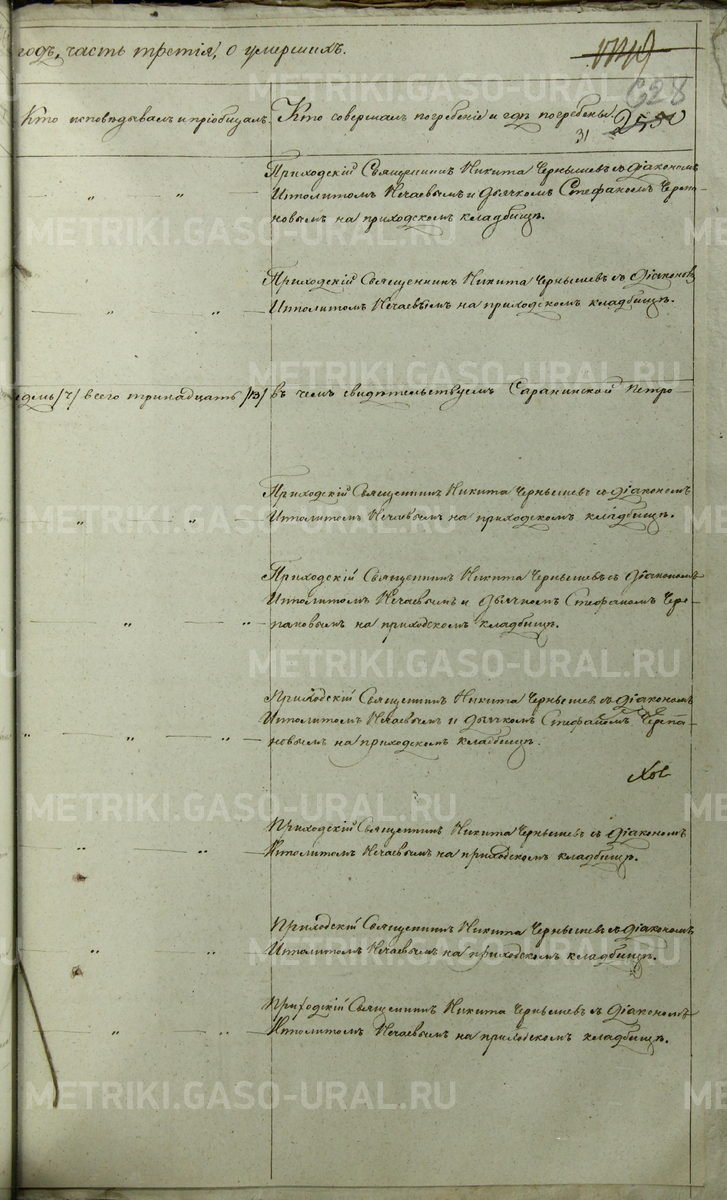 годъ, часть третія, о умершихъ.
628
Кто исповѣдывалъ и пріобщалъ. Кто совершалъ погребеніе и гдѣ погребены.
31
Приходскій Священникъ Никита Чернышевъ съ діакономъ
Ипполитомъ Нечаевымъ и дьячкомъ Стефаномъ Черепа-
новымъ на приходскомъ кладбищѣ.
Приходскій Священникъ Никита Чернышевъ съ діакономъ
Ипполитомъ Нечаевымъ на приходскомъ кладбищѣ.
всего тринадцать /13/ въ чемъ свидѣтельствуемъ Саранинской Петро-
Приходскій Священникъ Никита Чернышевъ съ діакономъ
Ипполитомъ Нечаевымъ на приходскомъ кладбищѣ.
Приходскій Священникъ Никита Чернышевъ съ діакономъ
Ипполитомъ Нечаевымъ и дьячкомъ Стефаномъ Чере-
пановымъ на приходскомъ кладбищѣ.
Приходскій Священникъ Никита Чернышевъ съ діакономъ
Ипполитомъ Нечаевымъ и дьячкомъ Стефаномъ Черепа-
новымъ на приходскомъ кладбищѣ.
Приходскій Священникъ Никита Чернышевъ съ діакономъ
Ипполитомъ Нечаевымъ на приходскомъ кладбищѣ.
Приходскій Священникъ Никита Чернышевъ съ діакономъ
Ипполитомъ Нечаевымъ на приходскомъ кладбищѣ.
Приходскій Священникъ Никита Чернышевъ съ діакономъ
Ипполитомъ Нечаевымъ на приходскомъ кладбищѣ.
METRIKI.GASO-URAL.RU